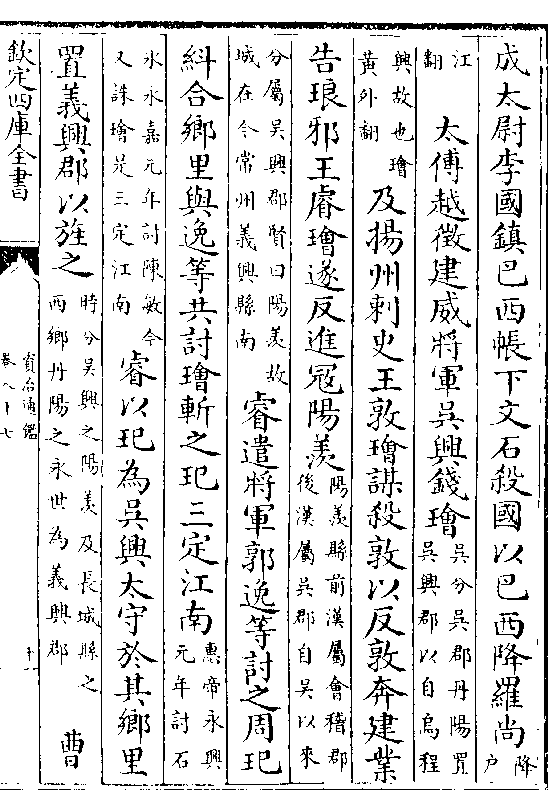 成太尉李國鎮巴西帳下文石殺國以巴西降羅尚降户
江翻太傅越徵建威將軍吳興錢璯吳分吳郡丹陽置吳興郡以自烏程
興故也璯黃外翻及揚州刺史王敦璯謀殺敦以反敦奔建業
告琅邪王睿璯遂反進冦陽羨陽羨縣前漢屬會稽郡後漢屬吳郡自吳以來
分屬吳興郡賢曰陽羨故城在今常州義興縣南睿遣將軍郭逸等討之周玘
糾合鄉里與逸等共討璯斬之玘三定江南惠帝永興元年討石
氷永嘉元年討陳敏今又誅璯是三定江南睿以玘為吳興太守於其鄉里
置義興郡以旌之時分吳興之陽羨及長城縣之西鄉丹陽之永世為義興郡曹
欽定四庫全書
資治通鑑
卷八十七
十一